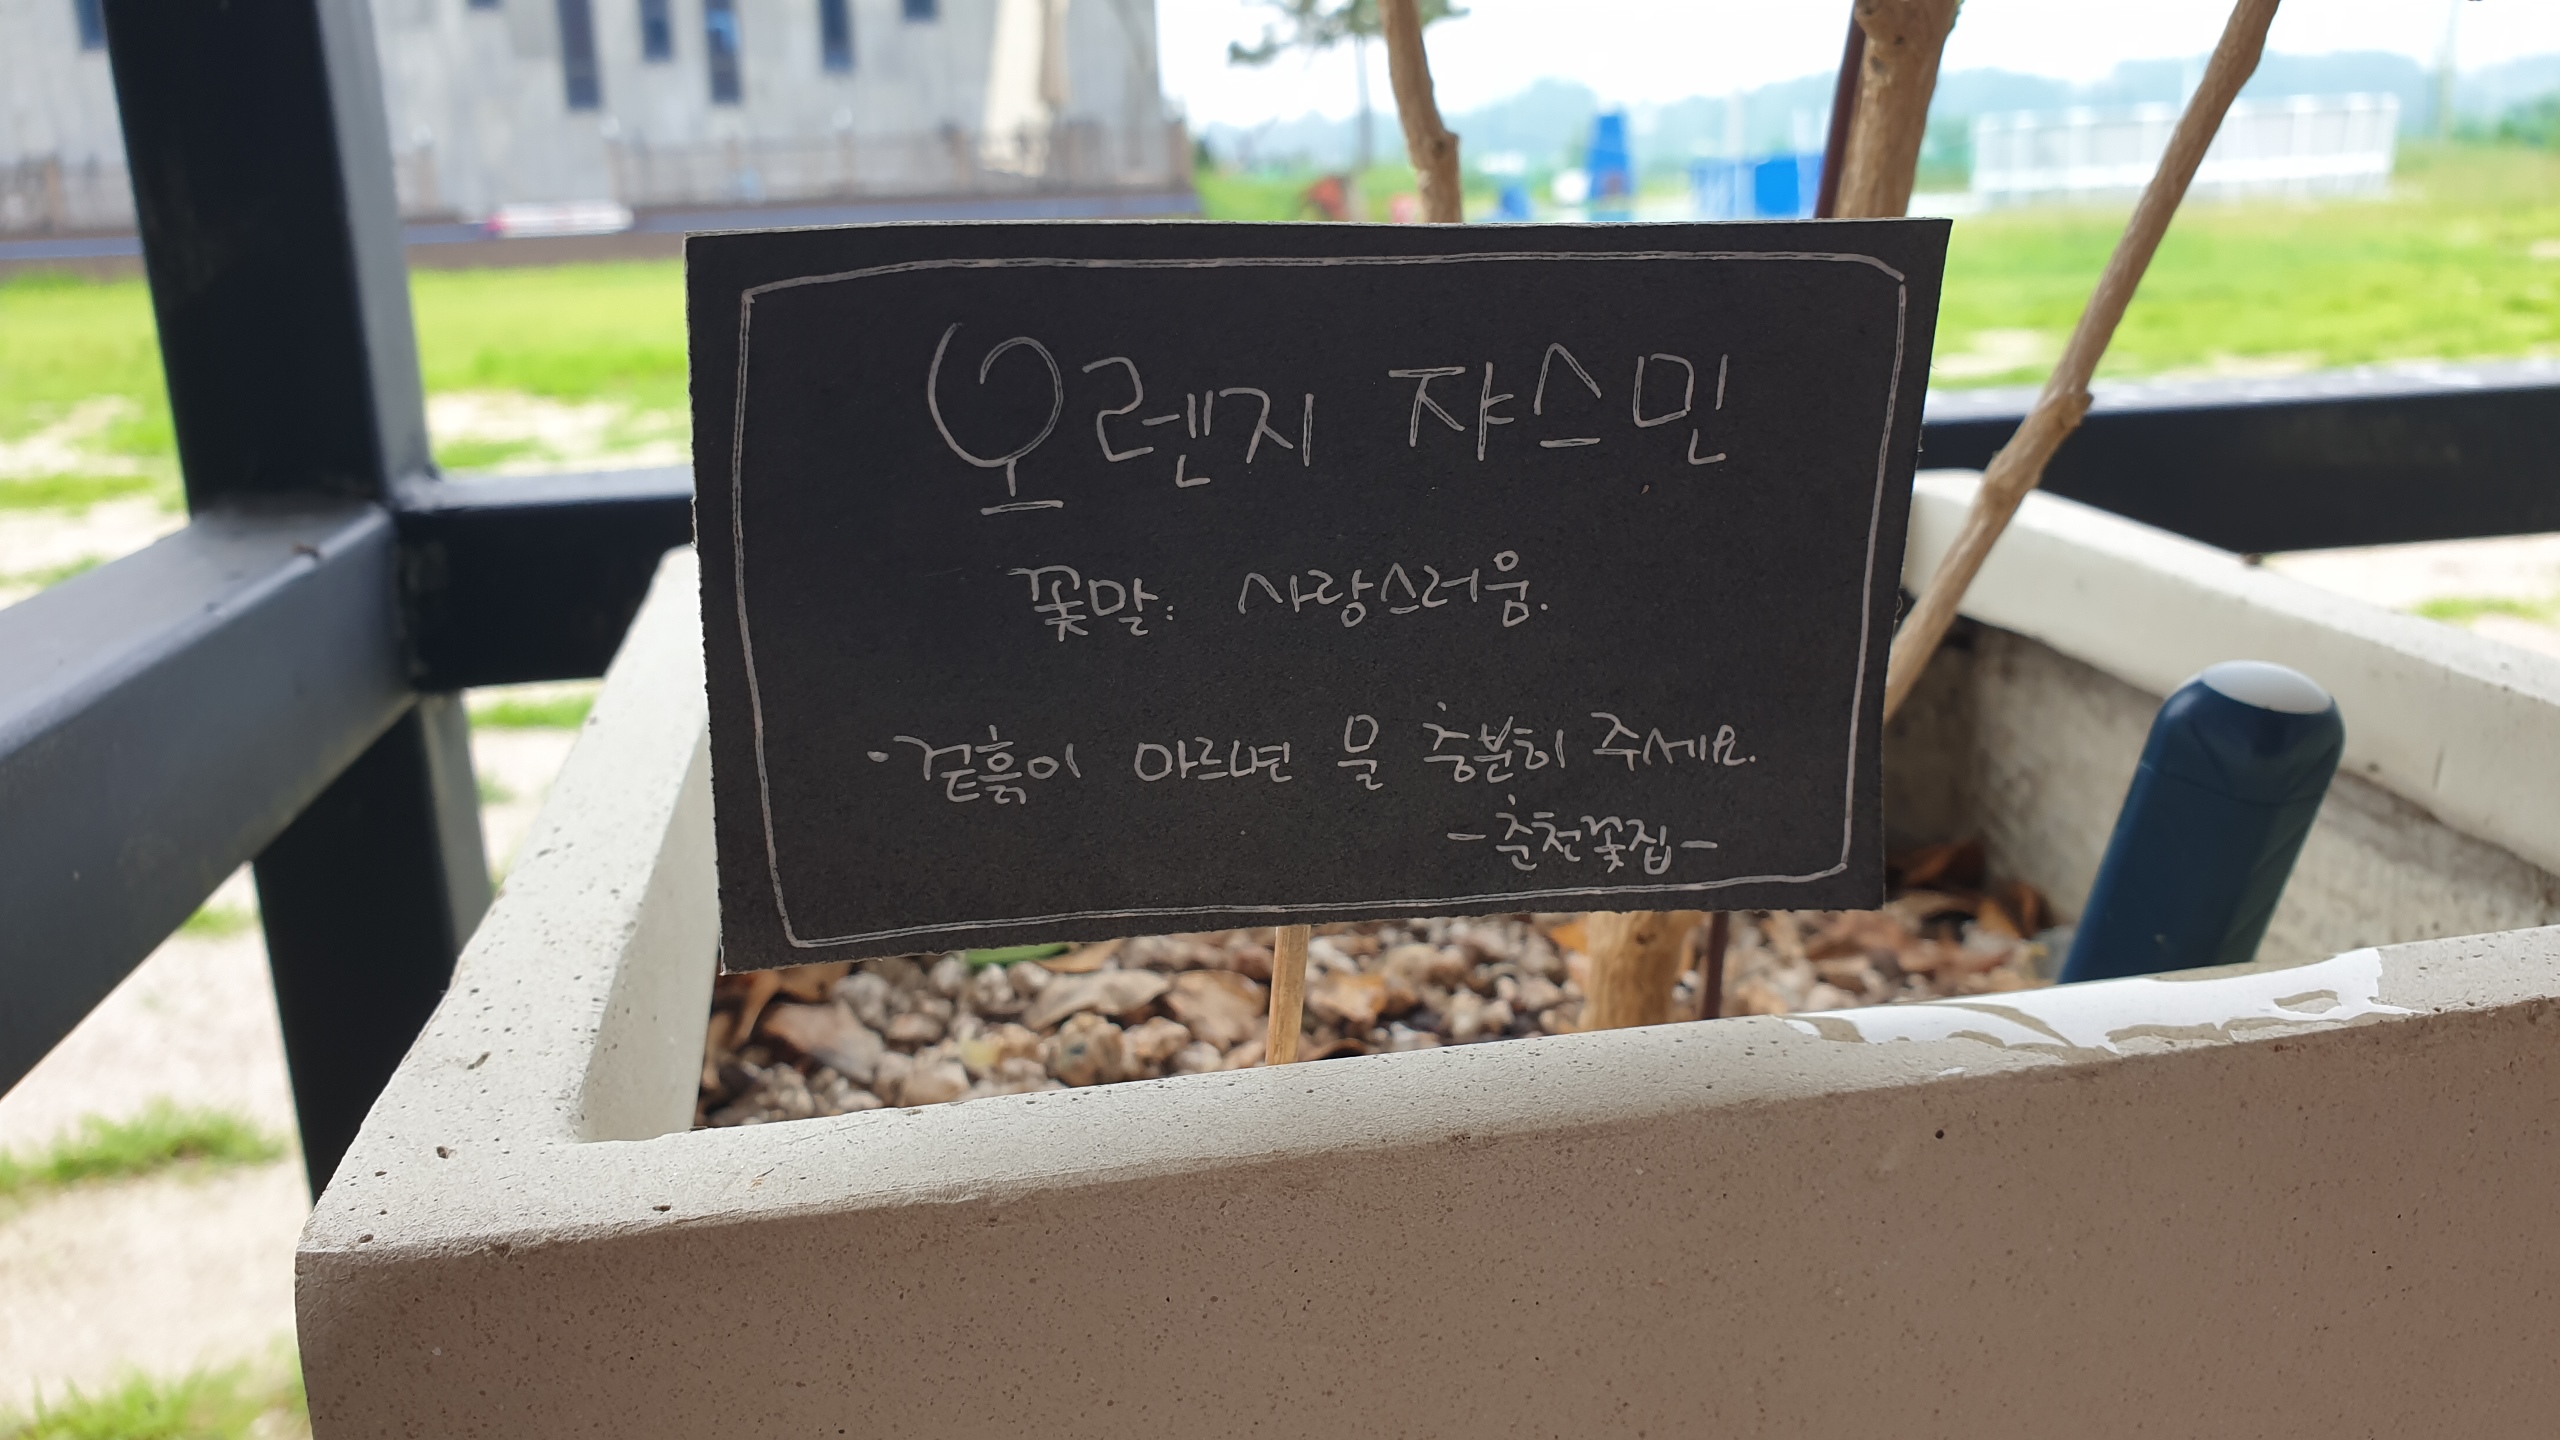 오렌지 쟈스민
꽃말: 사랑스러움.
·겉흙이 마르면 물 충분히 주세요.
-춘천꽃집-